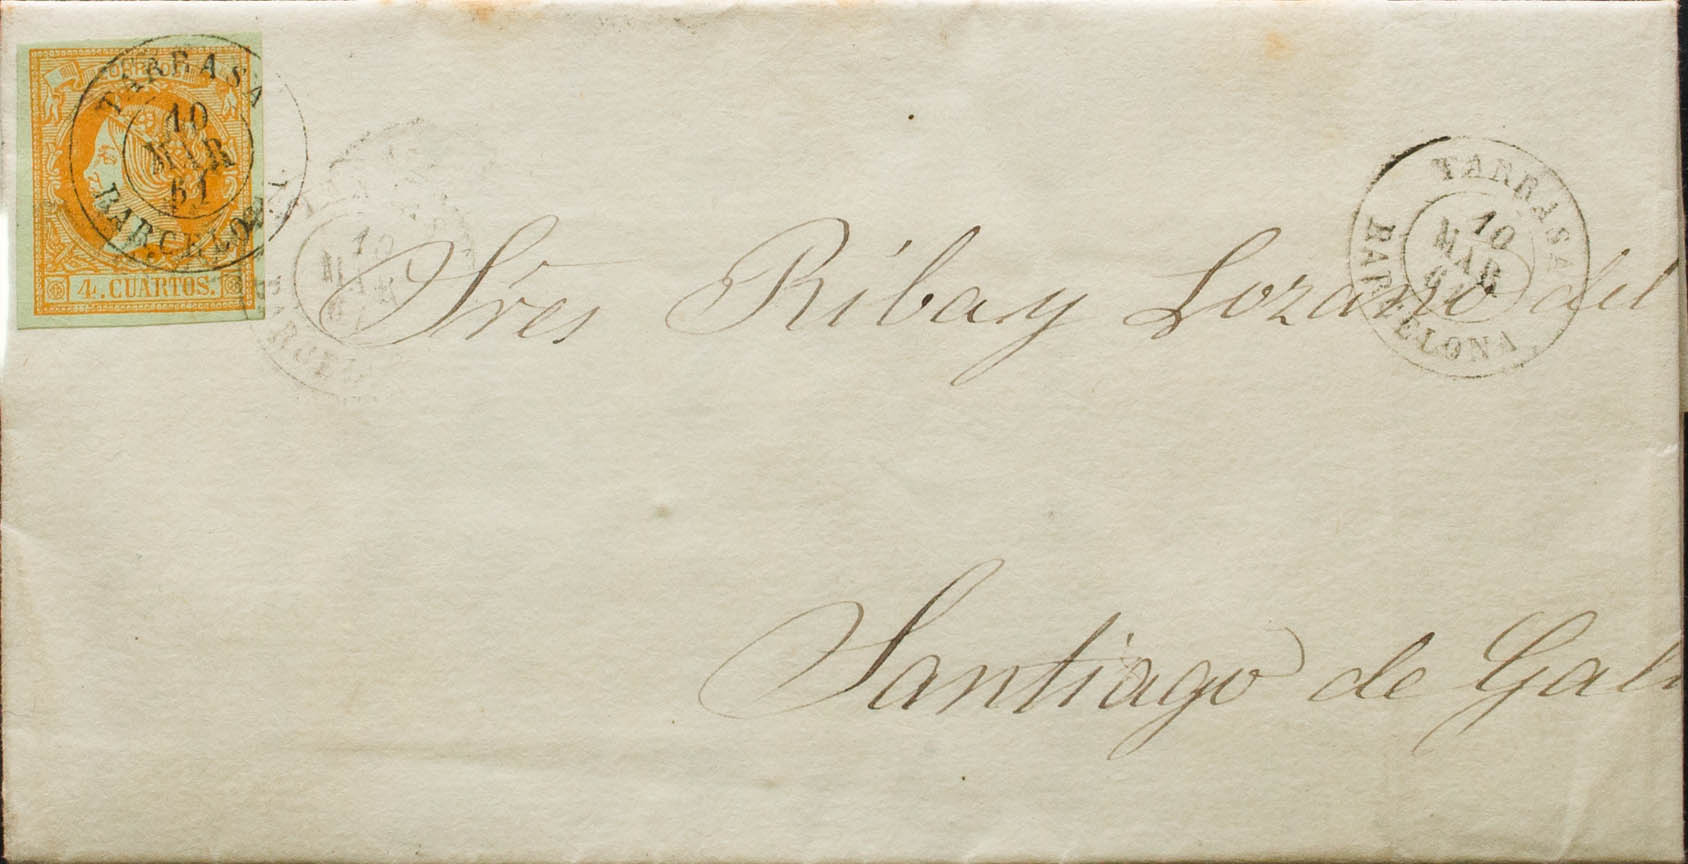 CORREOS
TARRASA
10
MAR
61
BARCELONA
4. CUARTOS.
10
MAR
61
BARCELO
TARRASA
10
MAR
61
BARCELONA
Sres Riba y Lozano del
Santiago de Gali